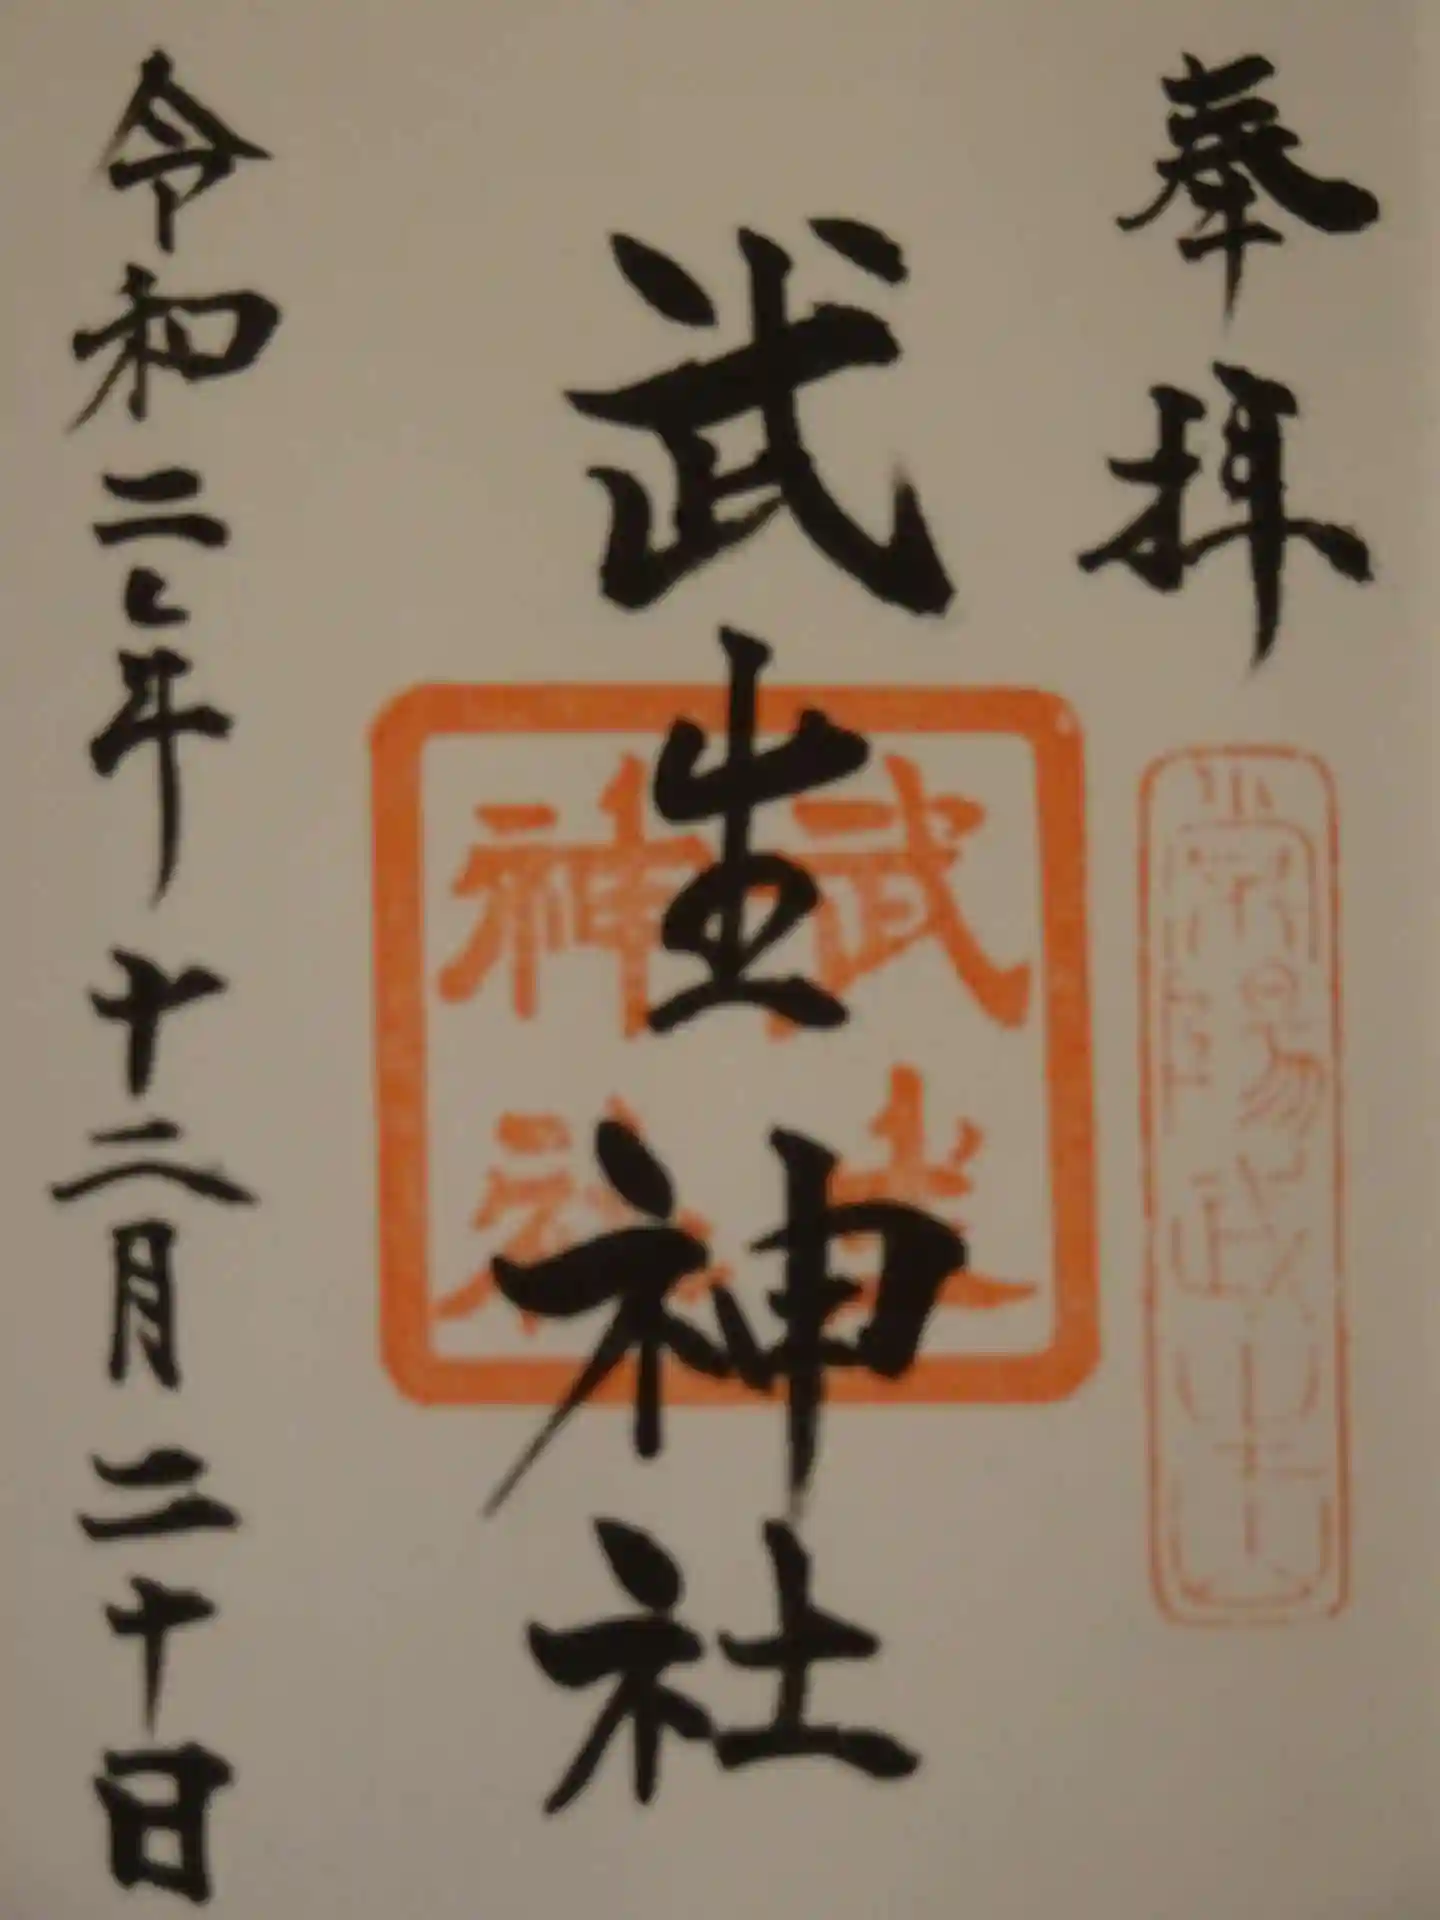 奉拝
常陽武生山
武生神社
武生神社
令和二年十二月二十日